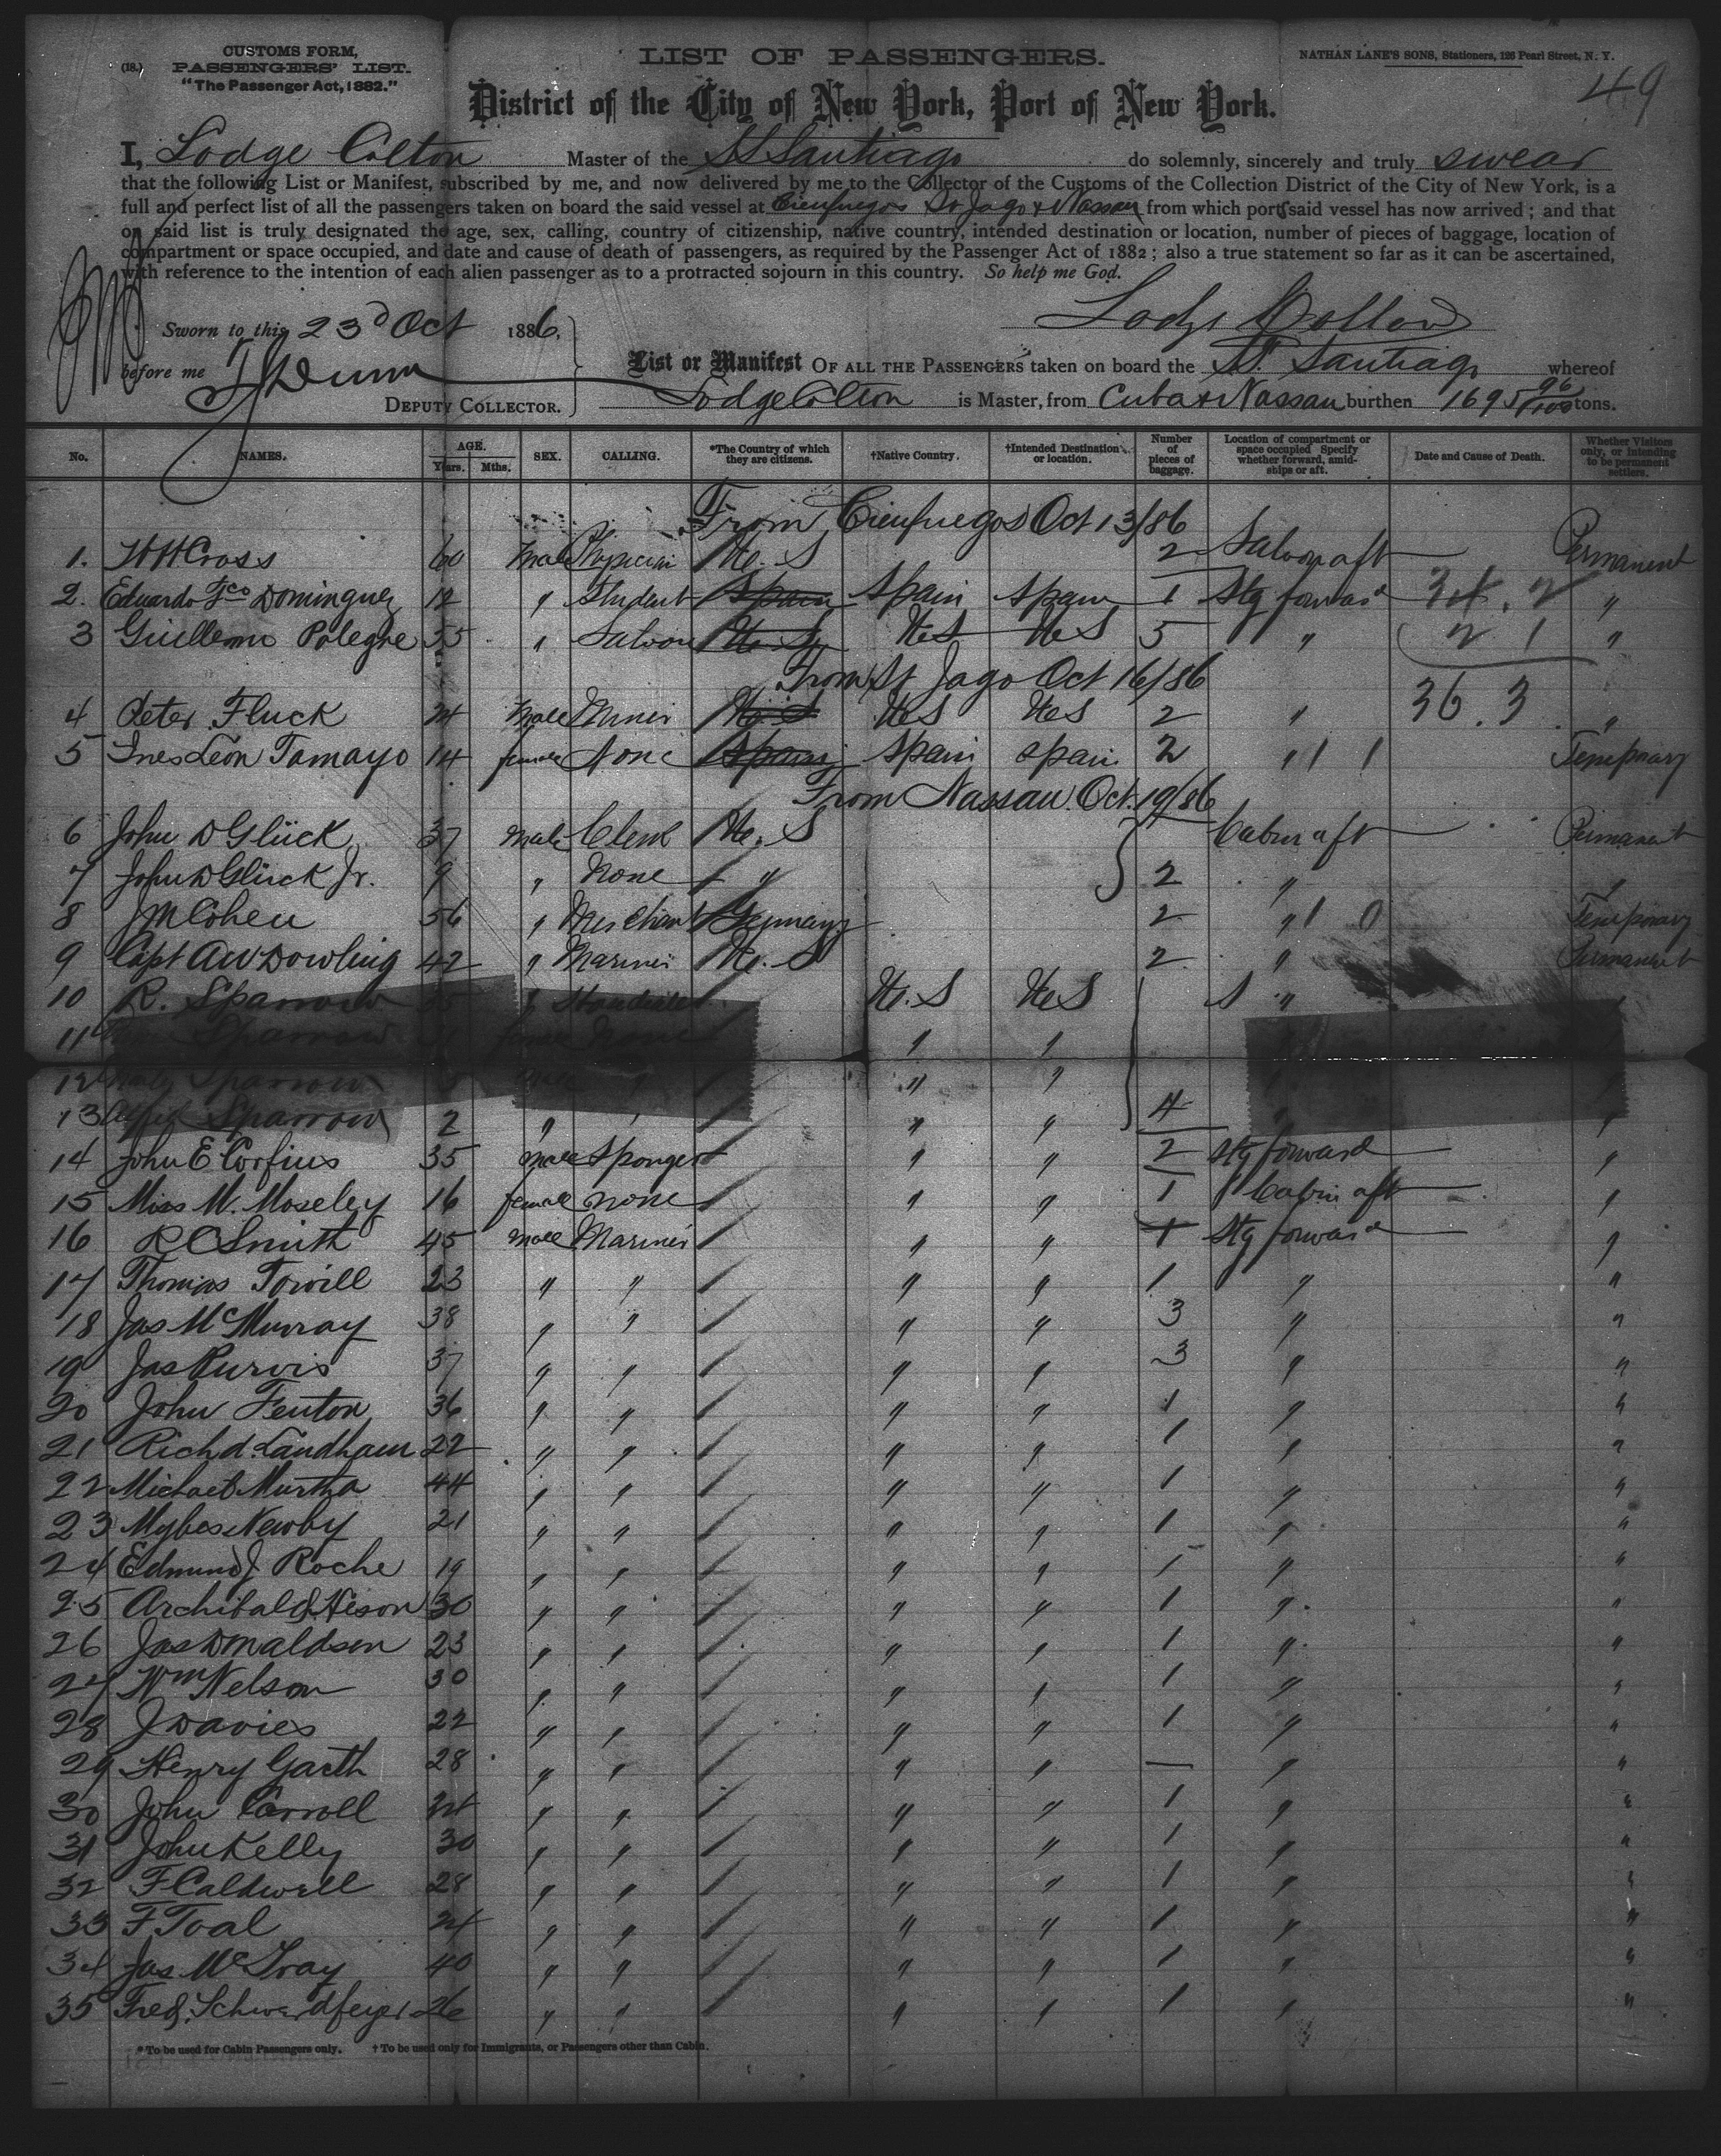 CUSTOMS FORM,
(18.) PASSENGERS' LIST.
"The Passenger Act, 1882."
LIST OF PASSENGERS.
NATHAN LANE'S SONS, Stationers, 126 Pearl Street, N. Y.
49
District of the City of New York, Port of New York.
I, Lodge Colton Master of the SS Santiago do solemnly, sincerely and truly swear
that the following List or Manifest, subscribed by me, and now delivered by me to the Collector of the Customs of the Collection District of the City of New York, is a
full and perfect list of all the passengers taken on board the said vessel at Cienfuegos St Jago & Nassau from which ports said vessel has now arrived; and that
on said list is truly designated the age, sex, calling, country of citizenship, native country, intended destination or location, number of pieces of baggage, location of
compartment or space occupied, and date and cause of death of passengers, as required by the Passenger Act of 1882; also a true statement so far as it can be ascertained,
with reference to the intention of each alien passenger as to a protracted sojourn in this country. So help me God.
Lodge Colton
Sworn to this 23d Oct 1886,
before me
DEPUTY COLLECTOR.
List or Manifest OF ALL THE PASSENGERS taken on board the SS. Santiago whereof
Lodge Colton is Master, from Cuba & Nassau burthen 1695 96/100 tons.
No. NAMES. AGE. Years. Mths. SEX. CALLING. *The Country of which they are citizens. †Native Country. †Intended Destination or location. Number of pieces of baggage. Location of compartment or space occupied Specify whether forward, amidships or aft. Date and Cause of Death. Whether Visitors only, or intending to be permanent settlers.
From Cienfuegos Oct 13/86
1. HH Cross 60 Male Physician U. S 2 Saloon aft Permanent
2. Eduardo Fco Dominguez 12 " Student Spain Spain Spain 1 Stg forward 34. 2 "
3 Guillermo Polegre 35 " US US US 5 " 2 1 "
From St Jago Oct 16/86
36. 3
4 Peter Fluck 24 Male Miner U. S US US 2 " "
5 Ines Leon Tamayo 14 female None Spain Spain Spain 2 " 1 1 Temporary
From Nassau Oct. 19/86
6 John D Glück 37 Male Clerk U. S Cabin aft Permanent
7 John D Glück Jr. 9 " None " 2 " "
8 JM Cohen 56 " Merchant Germany 2 " 1 0 Temporary
9 Capt AW Dowling 42 " Mariner U. S 2 " Permanent
10 R. Sparrow 35 " U. S US S " "
11 Sparrow " " "
12 Sparrow " " "
13 Alfred Sparrow 2 " " " " 4 " "
14 John E Corfius 35 male Sponger " " 2 Stg forward "
15 Miss M. Moseley 16 female none " " 1 Cabin aft "
16 R C Smith 45 male Mariner " " 1 Stg forward "
17 Thomas Towill 23 " " " " 1 " "
18 Jas McMurray 38 " " " " 3 " "
19 Jas Purvis 37 " " " " 3 " "
20 John Fenton 36 " " " " 1 " "
21 Richd. Landham 22 " " " " 1 " "
22 Michael Murtha 44 " " " " 1 " "
23 Myles Newby 21 " " " " 1 " "
24 Edmund J Roche 19 " " " " 1 " "
25 Archibald 30 " " " " 1 " "
26 Jas Donaldson 23 " " " " 1 " "
27 Wm Nelson 30 " " " " 1 " "
28 J Davies 22 " " " " 1 " "
29 Henry Garth 28 " " " " — " "
30 John Carroll 24 " " " " 1 " "
31 John Kelly 30 " " " " 1 " "
32 F Caldwell 28 " " " " 1 " "
33 F Toal 24 " " " " 1 " "
34 Jas McGray 40 " " " " 1 " "
35 Fred. 26 " " " " 1 " "
*To be used for Cabin Passengers only. †To be used only for Immigrants, or Passengers other than Cabin.